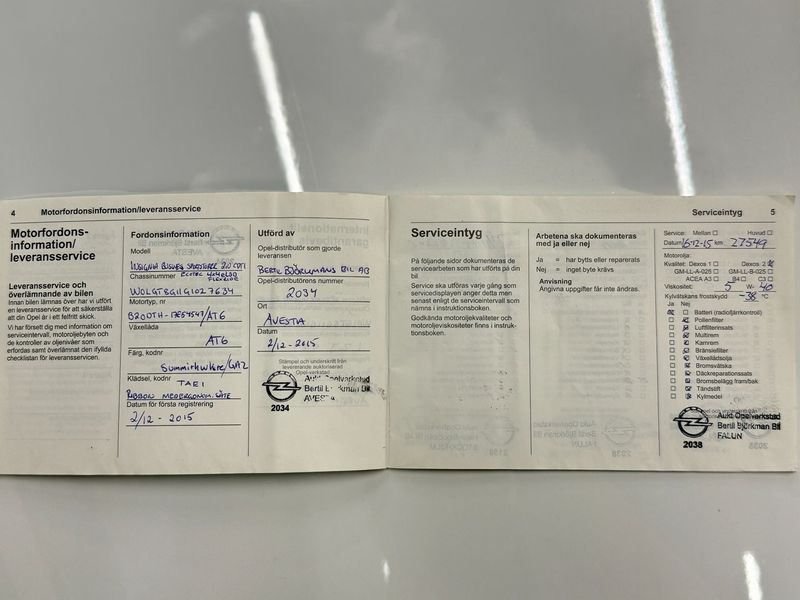 4 Motorfordonsinformation/leveransservice
Motorfordons-
information/
leveransservice
Leveransservice och
överlämnande av bilen
Innan bilen lämnas över har vi utfört
en leveransservice för att säkerställa
att din Opel är i ett felfritt skick.
Vi har försett dig med information om
serviceintervall, motoroljebyten och
de kontroller av oljenivåer som
erfordras samt överlämnat den ifyllda
checklistan för leveransservicen.
Fordonsinformation
Modell
INSIGNIA
Chassinummer
Motortyp, nr
Växellåda
AT6
Färg, kodnr
Klädsel, kodnr
TAEI
Datum för första registrering
2/12 - 2015
Utförd av
Opel-distributör som gjorde
leveransen
BERTIL BJÖRKMANS BIL AB
Opel-distributörens nummer
2034
Ort
AVESTA
Datum
2/12 - 2015
Stämpel och underskrift från
levererande auktoriserad
Opel-verkstad
2034
Serviceintyg 5
Serviceintyg
På följande sidor dokumenteras de
servicearbeten som har utförts på din
bil.
Service ska utföras varje gång som
servicedisplayen anger detta men
senast enligt de serviceintervall som
nämns i instruktionsboken.
Godkända motoroljekvaliteter och
motoroljeviskositeter finns i instruk-
tionsboken.
Arbetena ska dokumenteras
med ja eller nej
Ja = har bytts eller reparerats
Nej = inget byte krävs
Anvisning
Angivna uppgifter får inte ändras.
Service: Mellan Huvud
Datum 16-12-15 km 27549
Motorolja:
Kvalitet: Dexos 1 Dexos 2
GM-LL-A-025 GM-LL-B-025
ACEA A3 B4 C3
Viskositet: 5 W- 40
Kylvätskans frostskydd -38 °C
Ja Nej
Batteri (radiofjärrkontroll)
Pollenfilter
Luftfilterinsats
Multirem
Kamrem
Bränslefilter
Växellådsolja
Bromsvätska
Däckreparationssats
Bromsbelägg fram/bak
Tändstift
Kylmedel
Aukt Opelverkstad
Bertil Björkman Bil
FALUN
2038